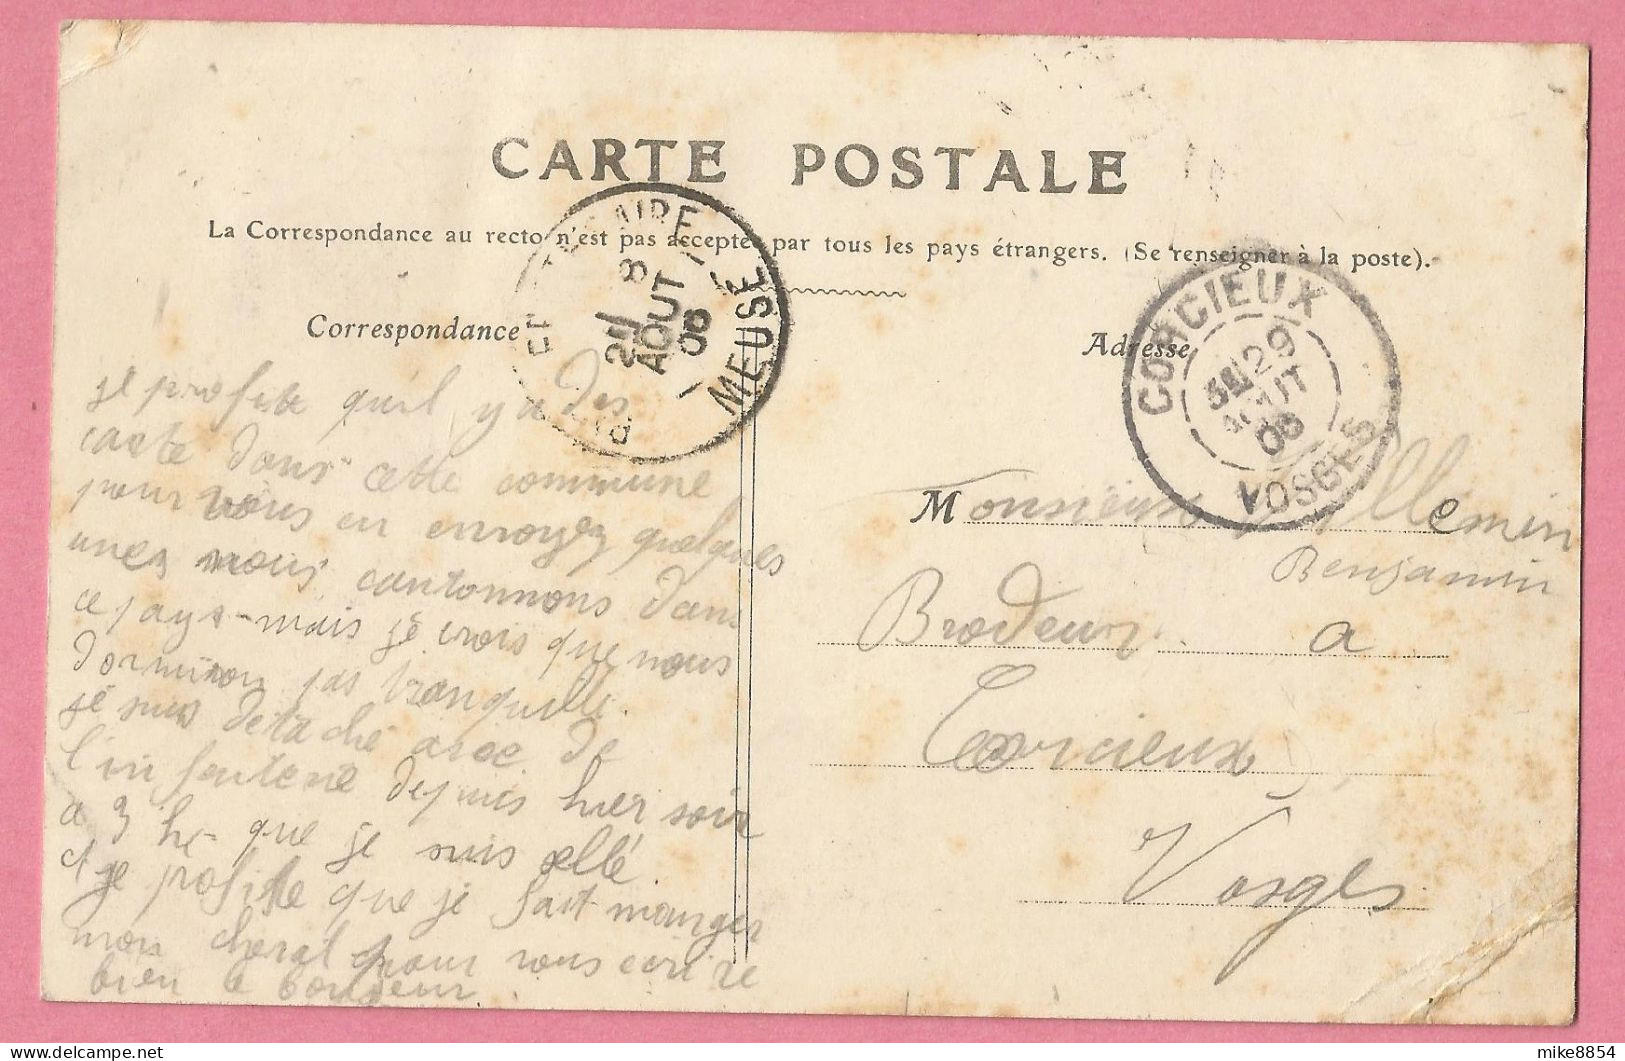 CARTE POSTALE
La Correspondance au recto n'est pas acceptée par tous les pays étrangers. (Se renseigner à la poste).
Correspondance
Adresse
AOUT
06
MEUSE
CORCIEUX
29
AOUT
06
VOSGES
je profite quil y a des
carte dans cette commune
pour vous en envoyez quelques
unes nous cantonnons dans
ce pays - mais je crois que nous
dorminon pas tranquille.
je suis detaché avec de
l'infenterie depuis hier soir
a 3 h - que je suis allé
et je profite que je fait manger
mon cheval pour vous ecrire
bien le bonjour
Monsieur Villemin
Benjamin
Brodeur a
Corcieux
Vosges
mike8854